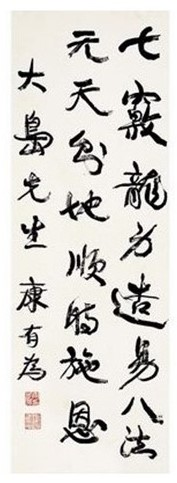 七竅龍方造易八法
元天象地順時施恩
大島先生 康有為